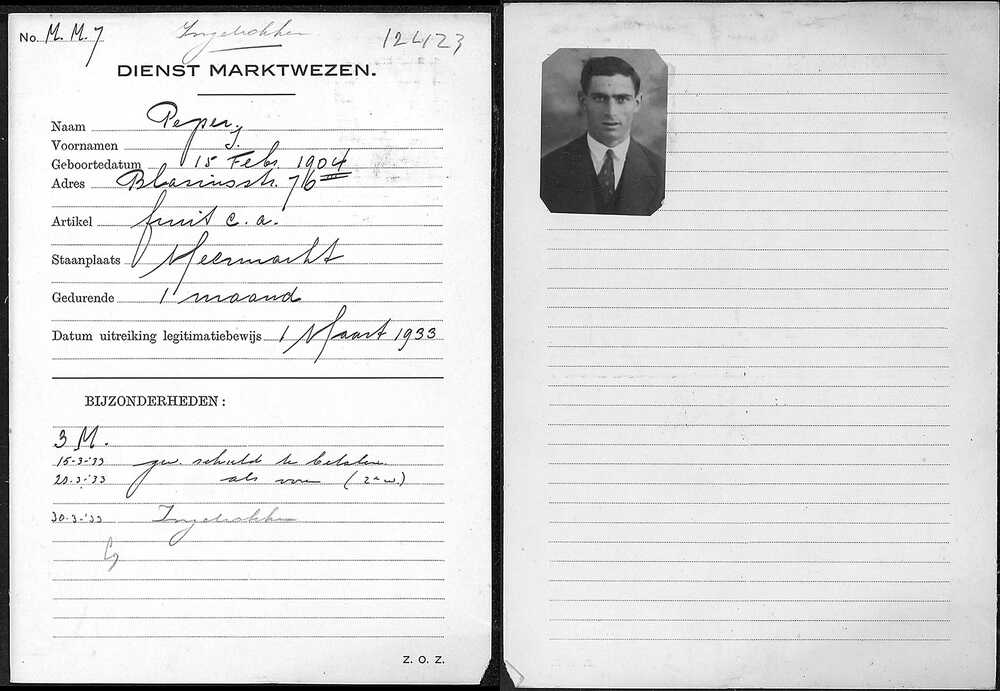 No. M. M. 7 Ingetrokken 124123
DIENST MARKTWEZEN.
Naam Peper,
Voornamen J.
Geboortedatum 15 Febr. 1904
Adres Blasiusstr. 76 III
Artikel fruit c.a.
Staanplaats Meermarkt
Gedurende 1 maand
Datum uitreiking legitimatiebewijs 1 Maart 1933
BIJZONDERHEDEN:
3 M.
15-3-'33 gew. schuld te betalen.
20-3-'33 als voren (2e w.)
30-3-'33 Ingetrokken
Z. O. Z.